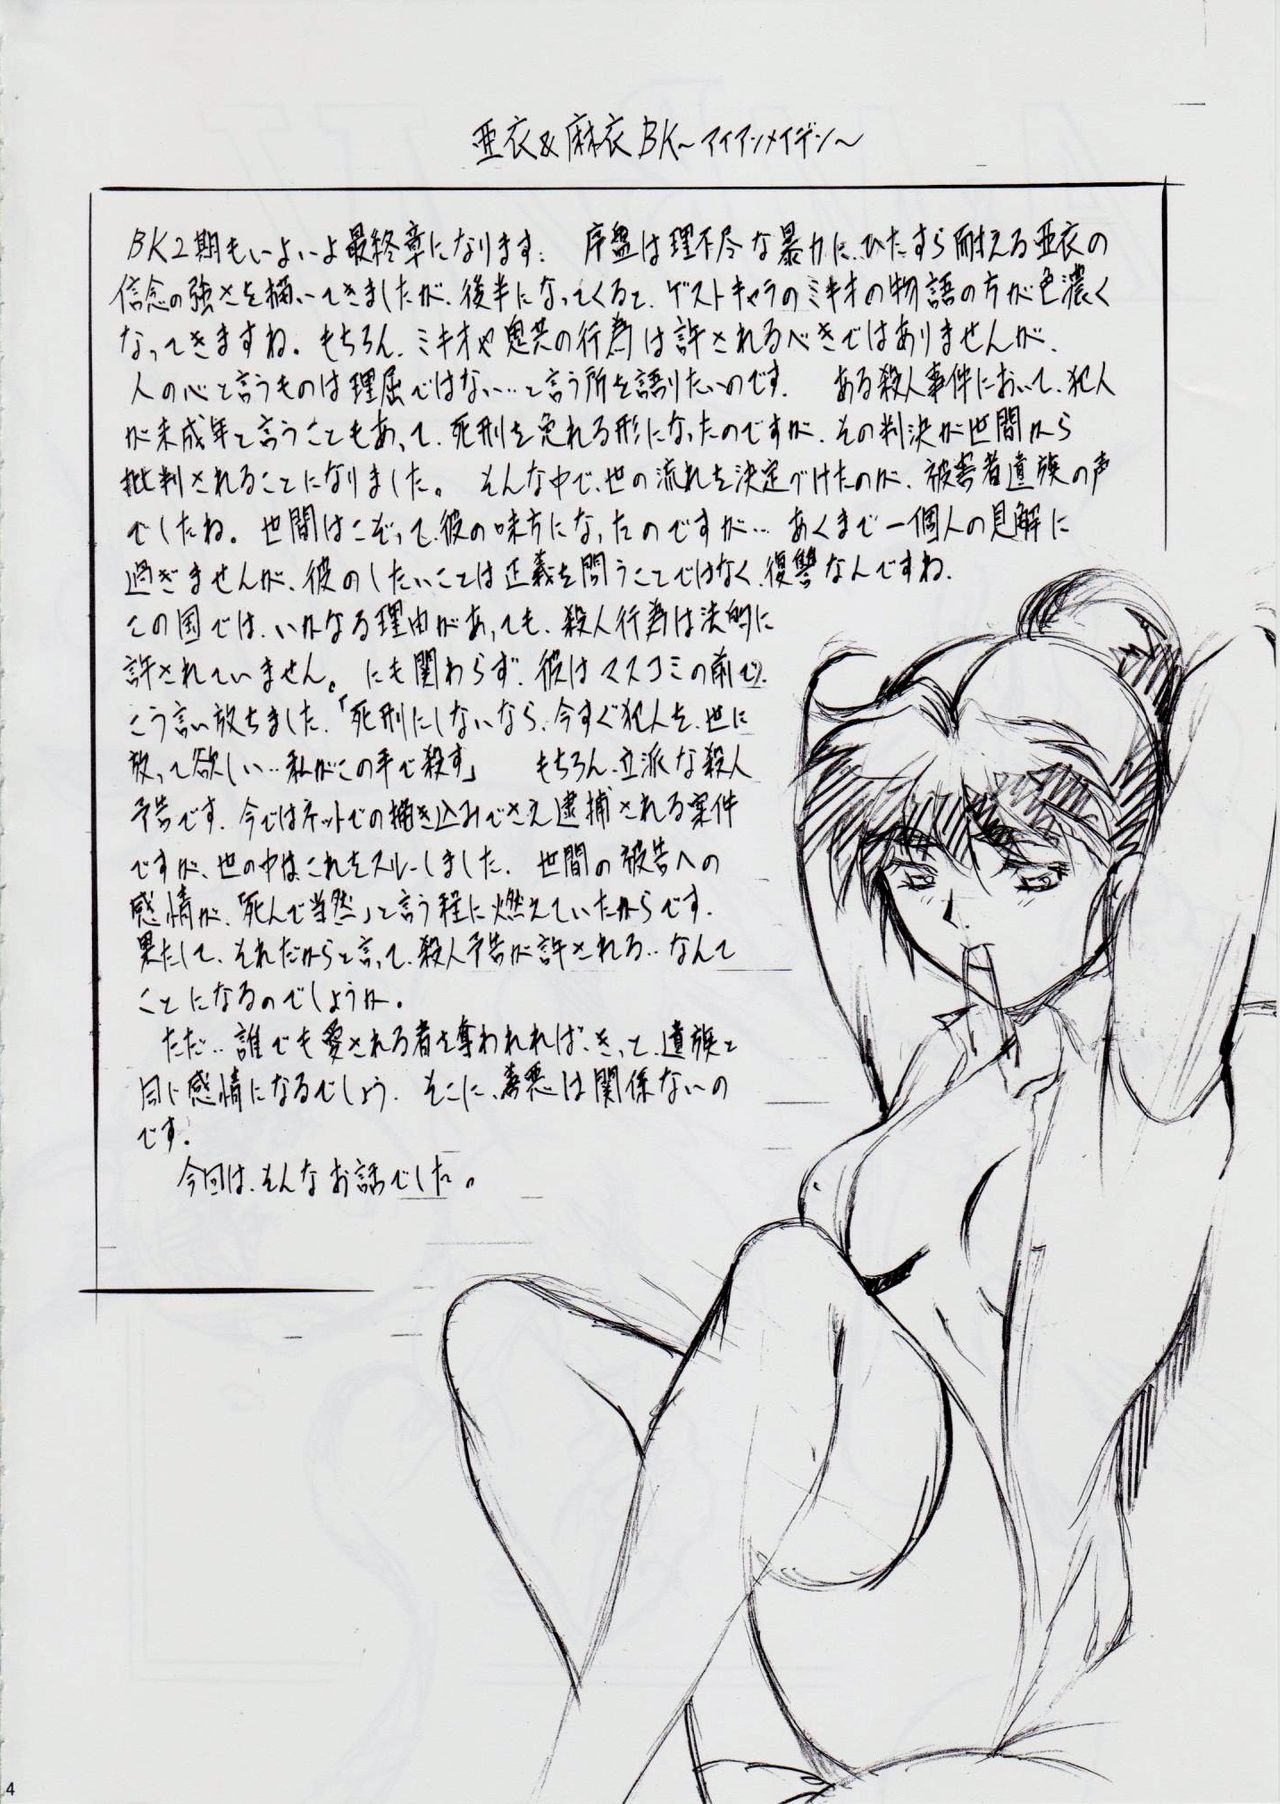 亜衣&麻衣BK～アイアンメイデン～
BK2期もいよいよ最終章になります. 序盤は理不尽な暴力に、ひたすら耐える亜衣の
信念の強さを描いてきましたが、後半になってくると、ゲストキャラのミキオの物語の方が色濃く
なってきますね。もちろん、ミキオや鬼共の行為は許されるべきではありませんが、
人の心と言うものは理屈ではない…と言う所を語りたいのです. ある殺人事件において、犯人
が未成年と言うこともあって、死刑を免れる形になったのですが、その判決が世間から
批判されることになりました。 そんな中で、世の流れを決定づけたのが、被害者遺族の声
でしたね。世間はこぞって、彼の味方になったのですが… あくまで一個人の見解に
過ぎませんが、彼のしたいことは正義を問うことではなく、復讐なんですね.
この国では、いかなる理由があっても、殺人行為は法的に
許されていません。にも関わらず、彼はマスコミの前で、
こう言い放ちました.「死刑にしないなら、今すぐ犯人を、世に
放って欲しい…私がこの手で殺す」 もちろん、立派な殺人
予告です. 今ではネットでの描き込みでさえ逮捕される案件
ですが、世の中は、これをスルーしました. 世間の被告への
感情が、「死んで当然」と言う程に燃えていたからです.
果たして、それだからと言って、殺人予告が許される…なんて
ことになるのでしょうか.
ただ… 誰でも愛される者を奪われれば、きっと、遺族と
同じ感情になるでしょう. そこに、善悪は関係ないの
です.
今回は、そんなお話でした。
4